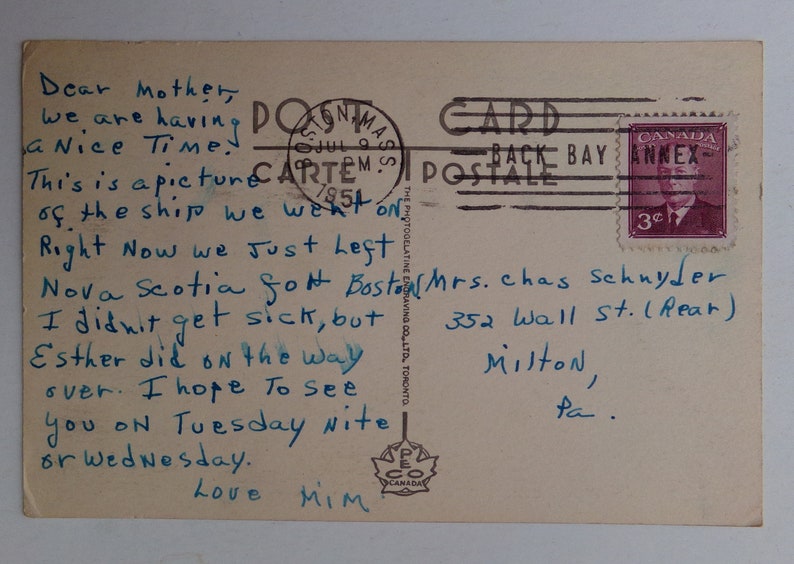 Dear Mother,
We are having
a Nice Time.
This is a picture
of the ship we went on.
Right Now we Just Left
Nova Scotia for Boston.
I didn't get sick, but
Esther did on the way
over. I hope To see
you on Tuesday Nite
or Wednesday.
Love Mim
POST CARD
CARTE POSTALE
BOSTON, MASS.
JUL 9
PM
1951
BACK BAY ANNEX
CANADA
3¢
THE PHOTOGELATINE ENGRAVING CO., LTD., TORONTO.
PECO
CANADA
Mrs. Chas Schnyder
352 Wall St. (Rear)
Milton,
Pa.